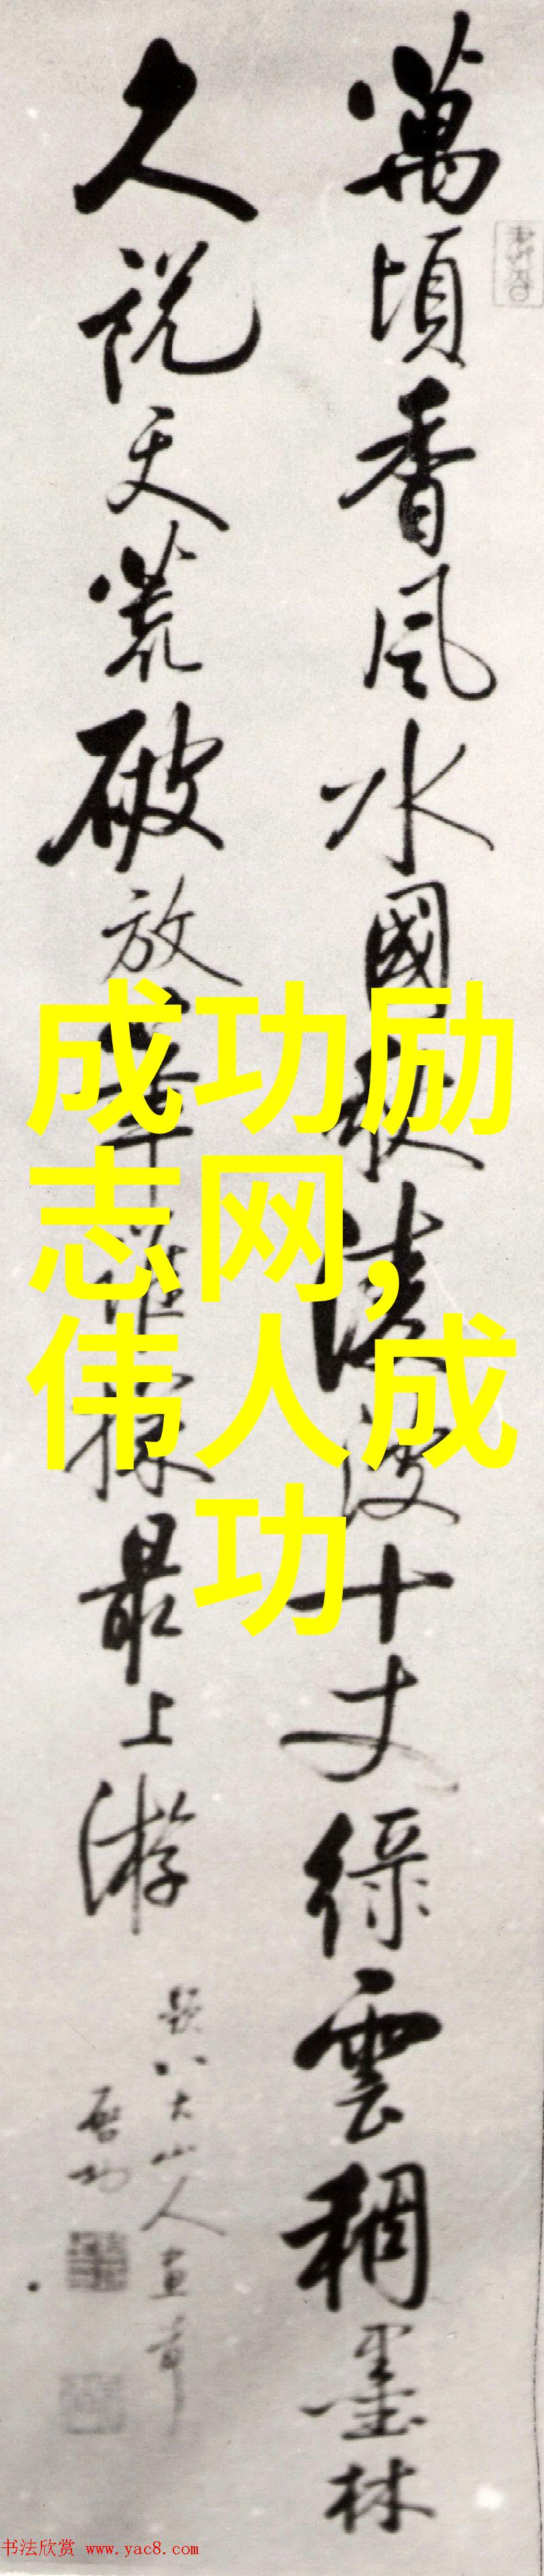 萬頃香風水國秋淩波十丈綠雲稠墨林
久說天荒破放筆誰探最上游
題八大山人畫
啓功
成功励
志网,
伟人成
功
书法欣赏 www.yac8.com